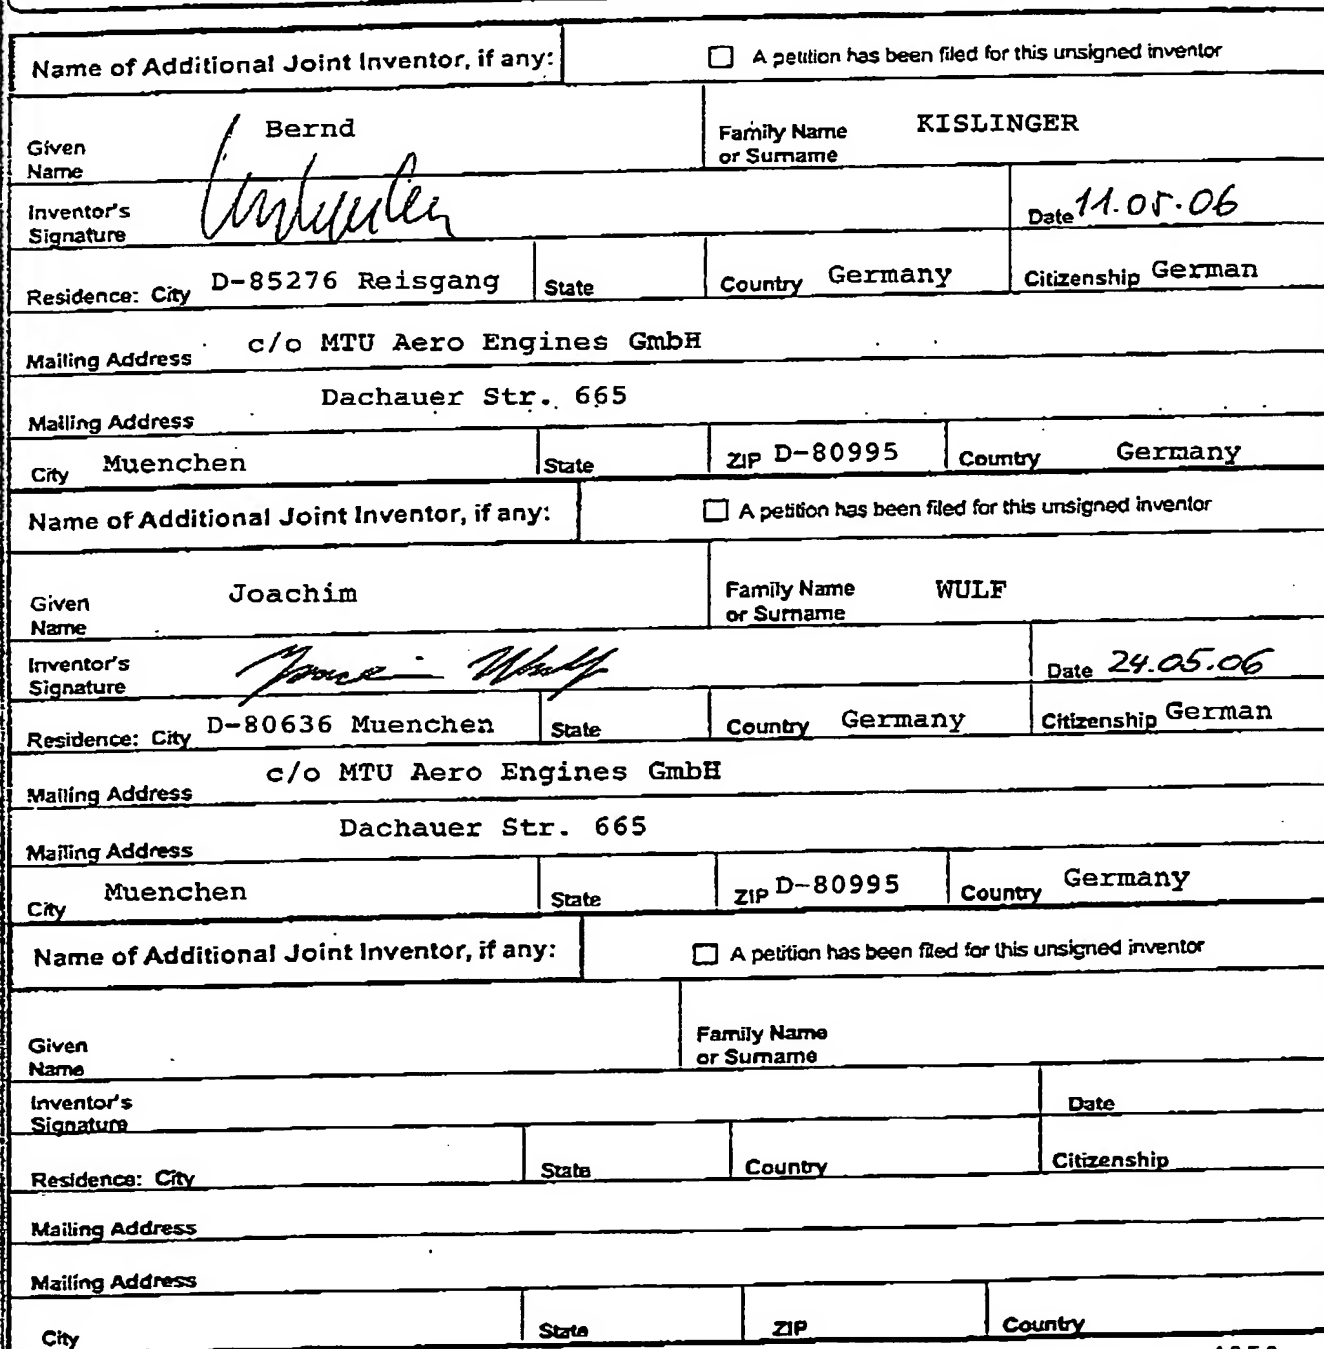 Name of Additional Joint Inventor, if any: ☐ A petition has been filed for this unsigned inventor
Given Name Bernd Family Name or Surname KISLINGER
Inventor's Signature Date 11.05.06
Residence: City D-85276 Reisgang State Country Germany Citizenship German
Mailing Address c/o MTU Aero Engines GmbH
Mailing Address Dachauer Str. 665
City Muenchen State ZIP D-80995 Country Germany
Name of Additional Joint Inventor, if any: ☐ A petition has been filed for this unsigned inventor
Given Name Joachim Family Name or Surname WULF
Inventor's Signature Joachim Wulf Date 24.05.06
Residence: City D-80636 Muenchen State Country Germany Citizenship German
Mailing Address c/o MTU Aero Engines GmbH
Mailing Address Dachauer Str. 665
City Muenchen State ZIP D-80995 Country Germany
Name of Additional Joint Inventor, if any: ☐ A petition has been filed for this unsigned inventor
Given Name Family Name or Surname
Inventor's Signature Date
Residence: City State Country Citizenship
Mailing Address
Mailing Address
City State ZIP Country